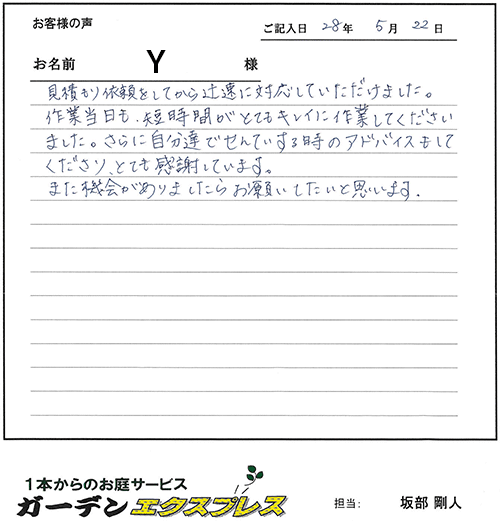 お客様の声
ご記入日 28年 5月 22日
お名前 Y 様
見積もり依頼をしてから迅速に対応していただけました。
作業当日も、短時間がとてもキレイに作業してください
ました。さらに自分達でせんていする時のアドバイスもして
くださり、とても感謝しています。
また機会がありましたらお願いしたいと思います.
1本からのお庭サービス
ガーデンエクスプレス
担当: 坂部 剛人